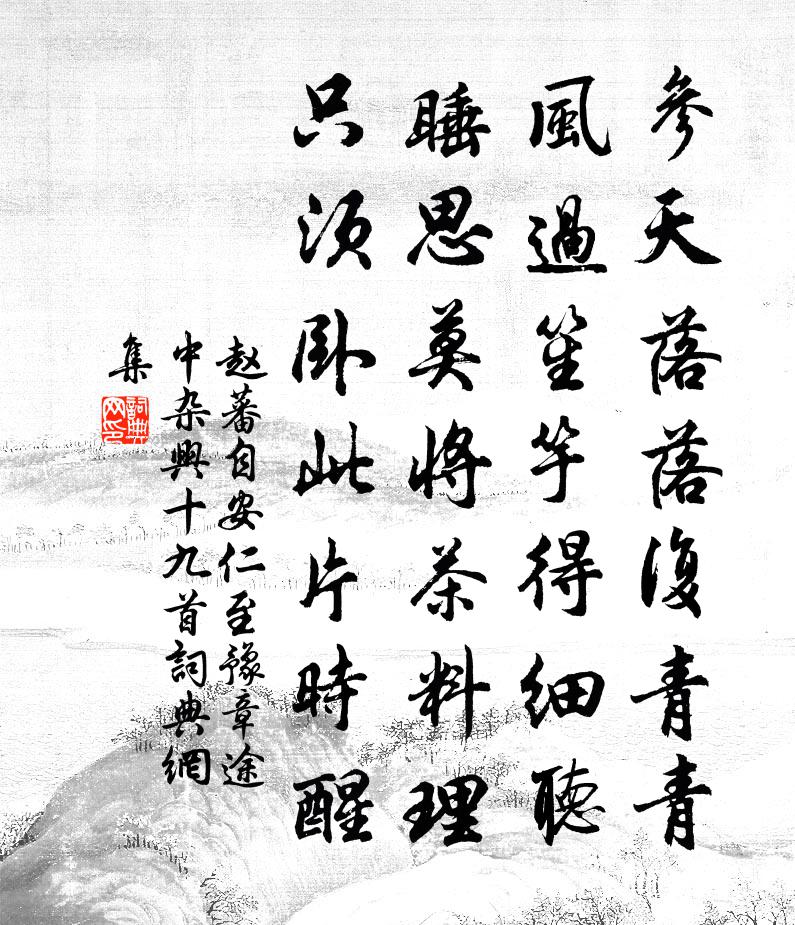 參天落落復青青
風過笙竽得細聽
睡思莫將茶料理
只須卧此片時醒
赵蕃自安仁至豫章途
中杂興十九首詞典網
集
詞典
网印